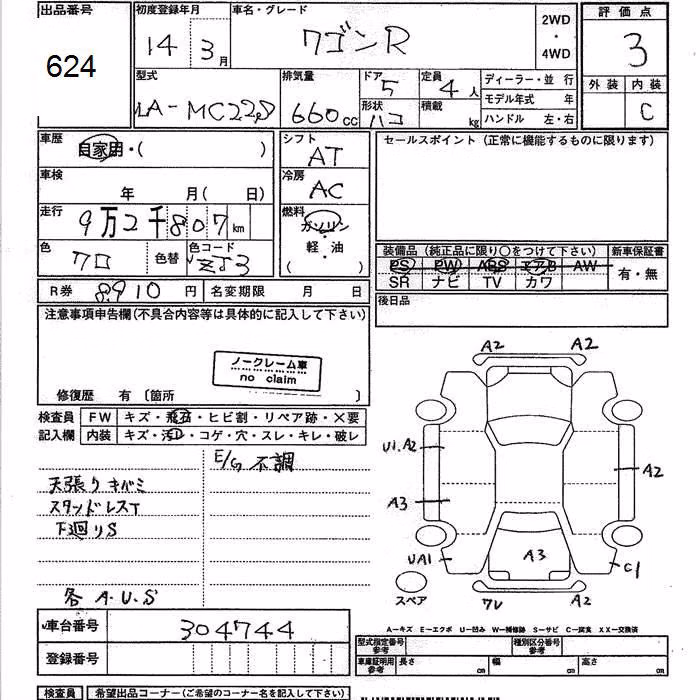 出品番号 初度登録年月 車名・グレード 2WD ・ 4WD 評価点
624 14 3月 ワゴンR 3
型式 排気量 ドア 5 定員 4人 ディーラー・並行 外装 内装
LA-MC22S 660cc 形状 ハコ 積載 kg モデル年式 年 C
ハンドル 左・右
車歴 自家用・( ) シフト AT セールスポイント (正常に機能するものに限ります)
車検 年 月( 日) 冷房 AC
走行 9万2千807km 燃料 ガソリン・軽・油 ( )
色 クロ 色替 色コード ZJ3 装備品 (純正品に限り○をつけて下さい) 新車保証書
PS PW ABS エアB AW 有・無
SR ナビ TV カワ
R券 8910円 名変期限 月 日 後日品
注意事項申告欄(不具合内容等は具体的に記入して下さい)
ノークレーム車
no claim
修復歴 有 〔箇所 〕
検査員 FW キズ・飛石・ヒビ割・リペア跡・×要
記入欄 内装 キズ・汚レ・コゲ・穴・スレ・キレ・破レ
E/G 不調
天張りキバミ
スタッドレスT
下廻りS
各 A.U.S
A2 A2
U1.A2 A2
A3
UA1 A3 C1
スペア ワレ A2
A-キズ E-エクボ U-凹み W-補修跡 S-サビ C-腐食 XX-交換済
車台番号 304744
登録番号
型式指定番号 参考 種別区分番号 参考
車庫証明用 参考 長さ cm 幅 cm 高さ cm
検査員 希望出品コーナー(ご希望のコーナー名を記入して下さい)